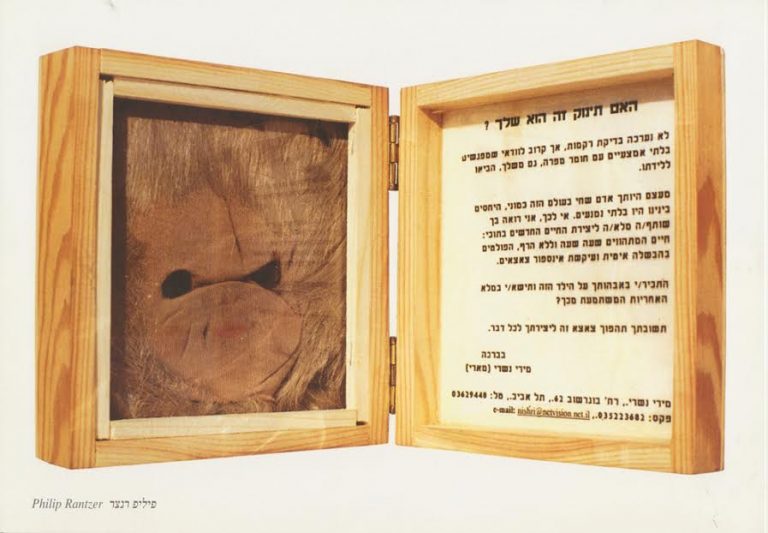 האם תינוק זה הוא שלך ?
לא נערכה בדיקת רקמות, אך קרוב לוודאי שמפגשים
בלתי אמצעיים עם חומר מפרה, גם משלך, הביאו
ללידתו.
מעצם היותך אדם שחי בעולם הזה כמוני, היחסים
בינינו היו בלתי נמנעים. אי לכך, אני רואה בך
שותף/ה מלא/ה ליצירת החיים החדשים בתוכי:
חיים המתהווים שעה שעה וללא הרף, הפולטים
בהבשלה איטית ועיקשת אינספור צאצאים.
התכיר/י באבהותך על הילד הזה ותישא/י במלא
האחריות המשתמעת מכך?
תשובתך תהפוך צאצא זה ליצירתך לכל דבר.
בברכה
מידי נשרי (מארי)
מידי נשרי,. רח' בוגרשוב 62,. תל אביב,. טל: 03629448
פקס: 035223682,. e-mail: nishri@netvision.net.il
Philip Rantzer פיליפ רנצר